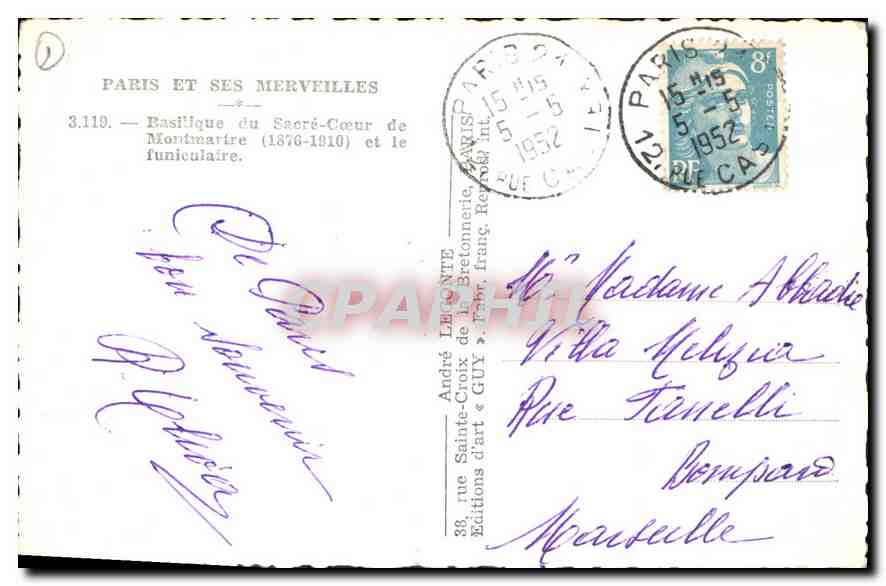 PARIS ET SES MERVEILLES
3.119. — Basilique du Sacré-Cœur de
Montmartre (1876-1910) et le
funiculaire.
De Paris
bon souvenir
André LECONTE
38, rue Sainte-Croix de la Bretonnerie, PARIS
Editions d'art « GUY ». Fabr. franç. Reprod. int.
PARIS
15 H 15
5 - 5
1952
RUE CA
PARIS
15 H 15
5 - 5
1952
12, RUE CAS
8F
POSTES
RF
Mr Madame Abbadie
Villa
Rue
Bompard
Marseille
CPAPHIL